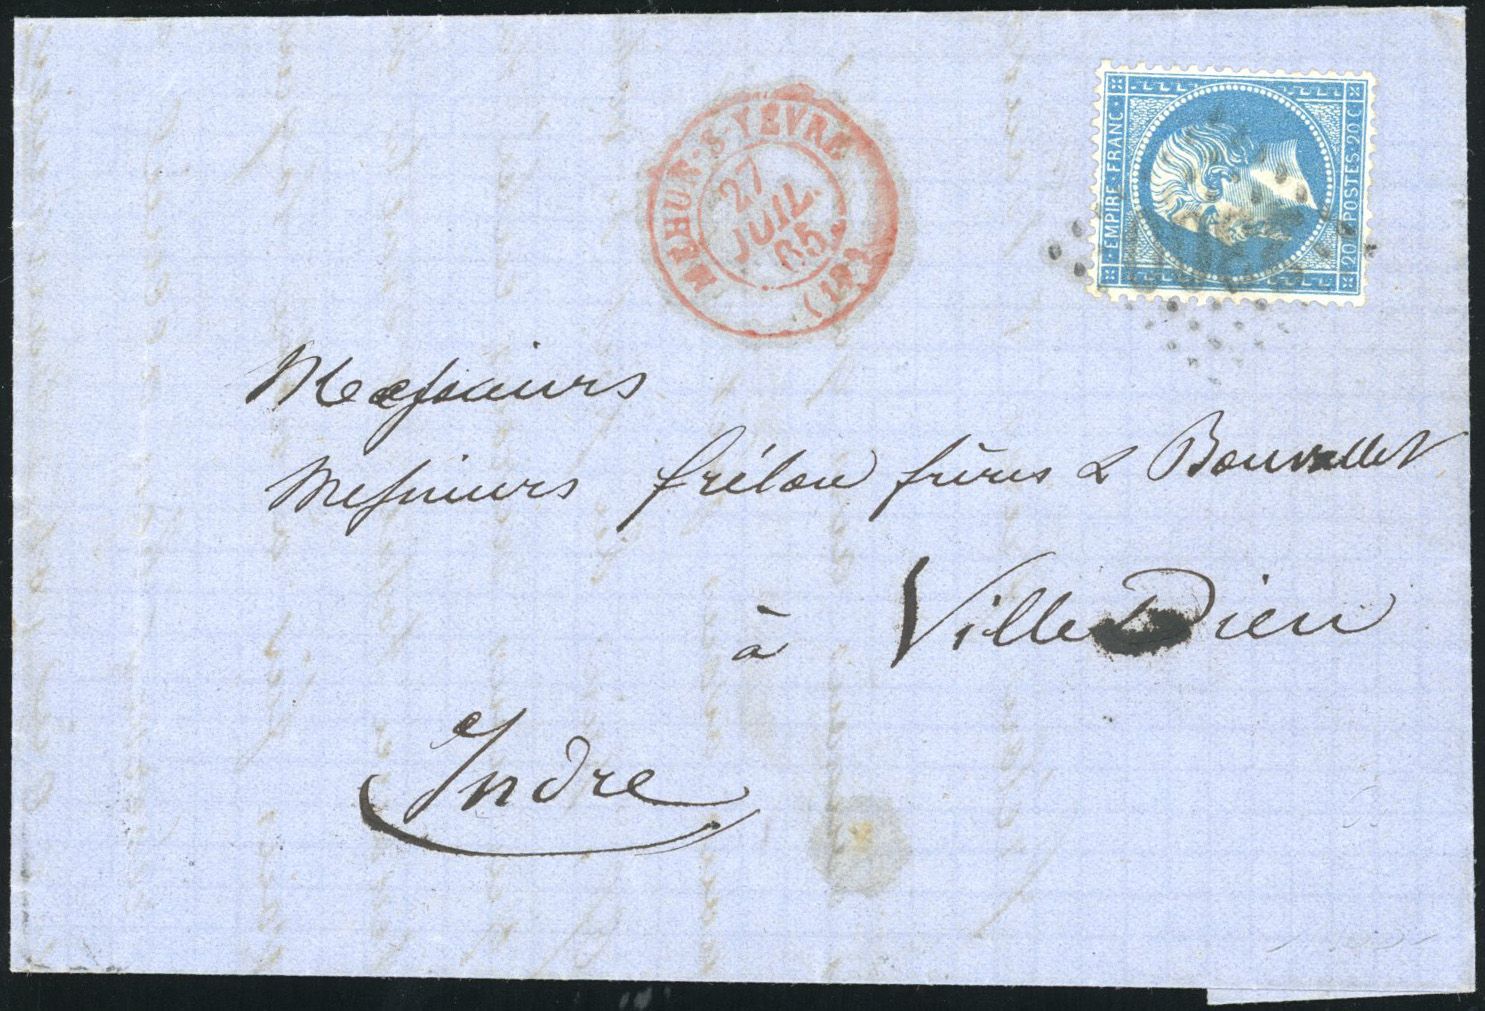 MEHUN-S-YÈVRE
27
JUIL.
65
(17)
EMPIRE FRANC
20 POSTES 20 C
Messieurs
Messieurs frélon frères & Bouvallet
à VilleDieu
Indre